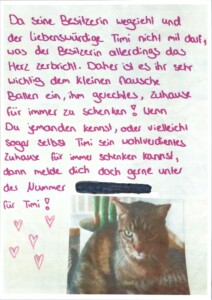 Da seine Besitzerin wegzieht und
der Liebenswürdige Timi nicht mit darf,
was der Besitzerin allerdings das
Herz zerbricht. Daher ist es ihr sehr
wichtig dem kleinen flausche
Ballen ein, ihm gerechtes, Zuhause
für immer zu schenken! Wenn
Du jemanden kennst, oder vielleicht
sogar selbst Timi sein wohlverdientes
Zuhause für immer schenken kannst,
dann melde dich doch gerne unter
der Nummer
für Timi!